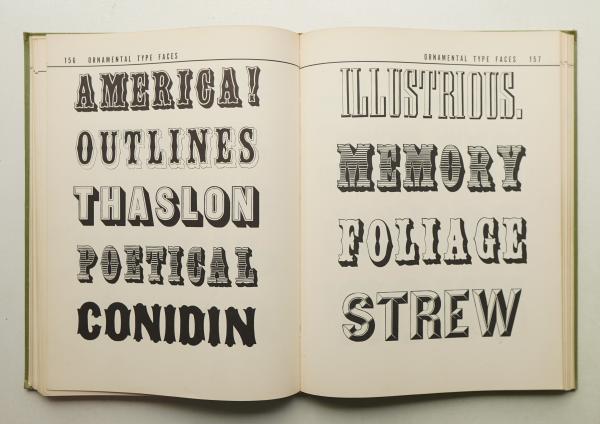 156 ORNAMENTAL TYPE FACES
AMERICA!
OUTLINES
THASLON
POETICAL
CONIDIN
ORNAMENTAL TYPE FACES 157
ILLUSTRIOUS.
MEMORY
FOLIAGE
STREW